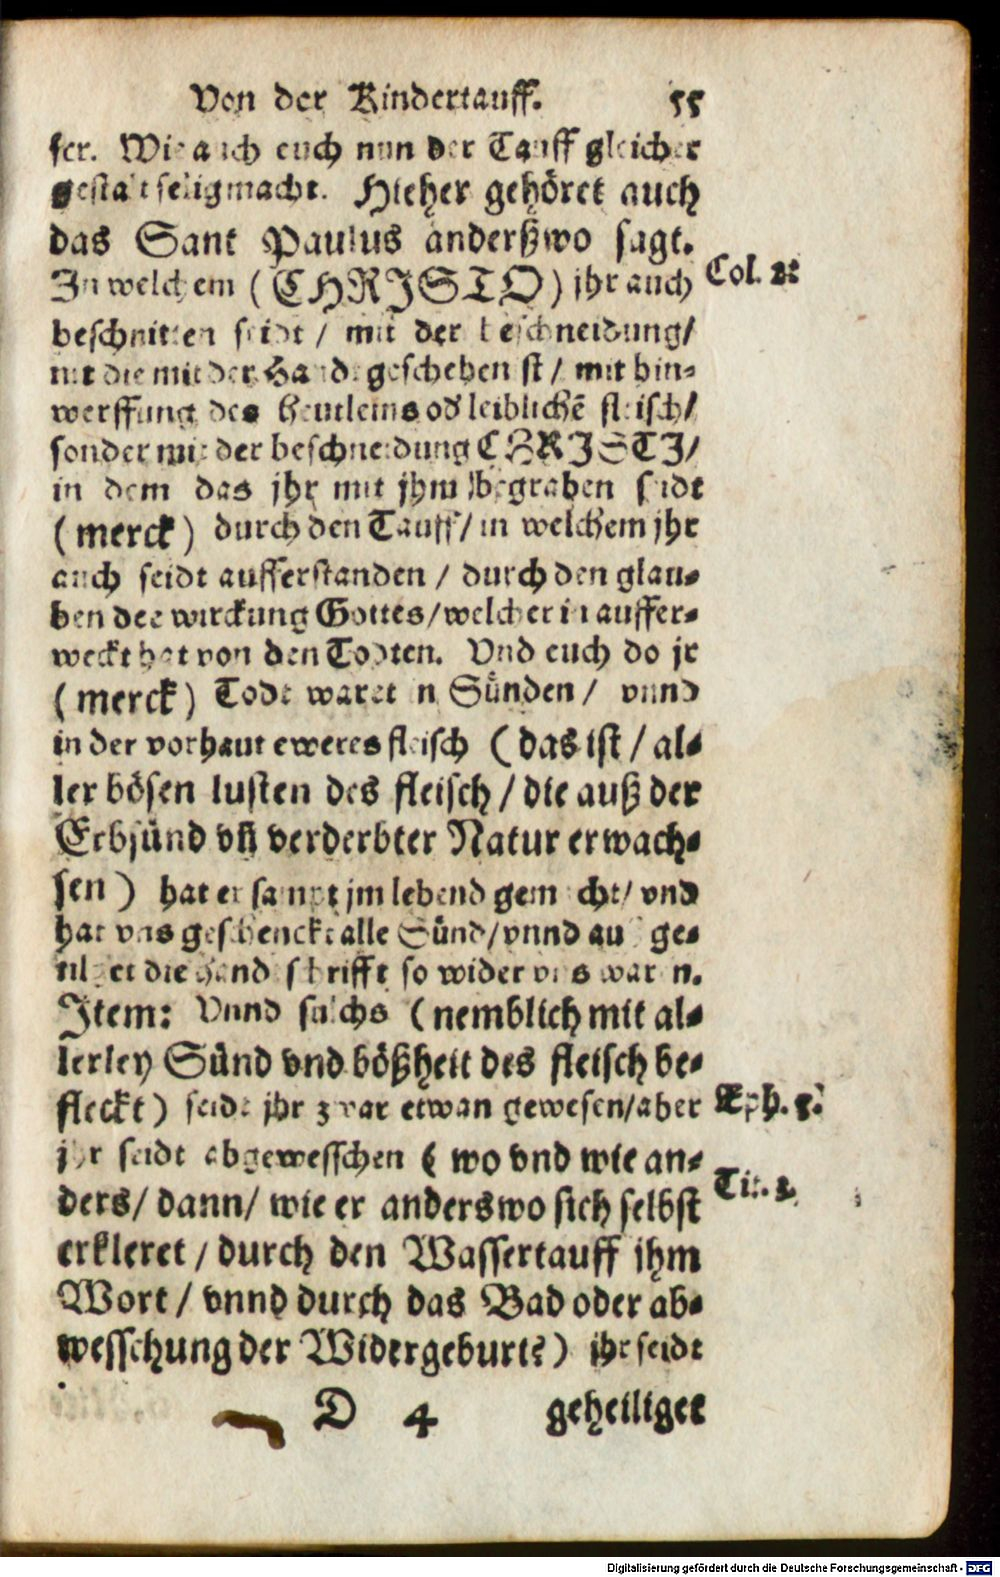 Von der Kindertauff. 55
ser. Wie auch euch nun der Tauff gleicher
gestalt seligmacht. Hieher gehöret auch
das Sant Paulus anderßwo sagt.
In welchem (CHRISTO) jhr auch Col. 2:
beschnitten seidt / mit der beschneidung/
nit die mit der Hand geschehen ist / mit hin-
werffung des heutleins od' leiblichē fleisch/
sonder mit der beschneidung CHRISTI/
in dem das jhr mit jhm begraben seidt
(merck) durch den Tauff/ in welchem jhr
auch seidt aufferstanden / durch den glau-
ben der wirckung Gottes/welcher in auffer-
weckt hat von den Todten. Vnd euch do jr
(merck) Todt waret in Sünden / vnnd
in der vorhaut eweres fleisch (das ist / al-
ler bösen lusten des fleisch / die auß der
Erbsünd vñ verderbter Natur erwach-
sen) hat er sampt jm lebend gemacht/ vnd
hat vns geschenckt alle Sünd/vnnd auß ge-
tilget die Handschrifft so wider vns waren.
Item: Vnnd solchs (nemblich mit al-
lerley Sünd vnd bößheit des fleisch be-
fleckt) seidt jhr zwar etwan gewesen/aber Eph. 5:
jhr seidt abgewesschen (wo vnd wie an-
ders/ dann/ wie er anderswo sich selbst Tit. 3.
erkleret / durch den Wassertauff jhm
Wort / vnnd durch das Bad oder ab-
wesschung der Widergeburt?) jhr seidt
D 4 geheiliget
Digitalisierung gefördert durch die Deutsche Forschungsgemeinschaft - DFG